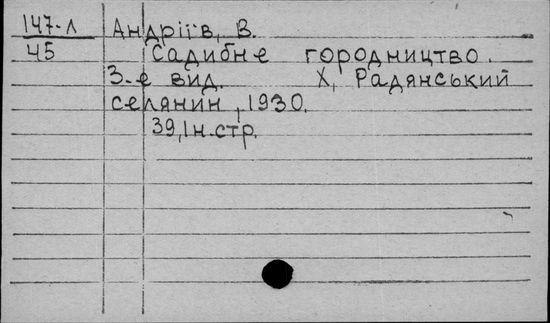 147-л Андріїв, В.
45 Садибне городництво.
3-е вид. Х, Радянський
селянин, 1930.
39, Ін. стр.